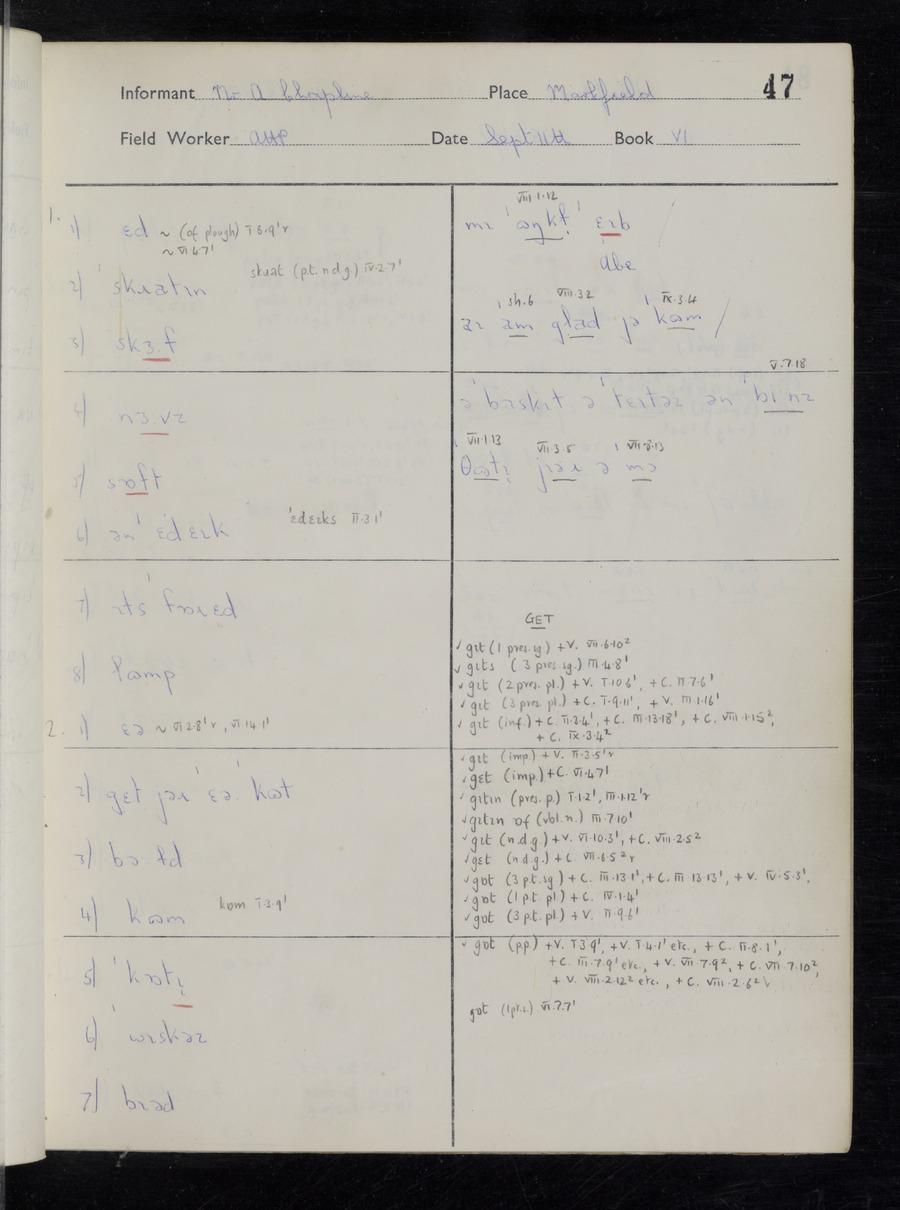 47
Informant Mr A Place Markfield
Field Worker Date Sept 11th Book VI
1.
1) ɛd ~ (of plough) I·3·9¹r
~ VI·4·7¹
2) skɹatɪn skɹat (p.t. n d g) IV·2·7¹
3) skɜ·f
4) nɜ·vz
5) sɒft
6) ən ˈɛdɛɪk ˈɛdɛɪks II·3·1¹
7) ɪts
8) ɫamp
2. 1) ɛə ~ VI·2·8¹r, VI·14·1¹
2) gɛt jəɹ ɛə· kʊt
3) bɔ·ɫd
4) kʊm kʊm I·3·9¹
5) ˈkɒtɪ
6) wɪskəz
7) bɪəd
VIII·1·12
mɪ ˈʊŋkɫ ˈɛɪb
Abe
sh.6 VIII·3·2 IX·3·4
am glad jə kʊm /
V·7·18
ə baskɪt ə tɛɪtəz ən bi·nz
VII·1·13 VII·3·5 VII·8·13
θətɪ jəɹ ə mə
GET
✓ gɪt (1 pres. sg.) + V. VII·6·10²
✓ gɪts (3 pres. sg.) III·4·8¹
✓ gɪt (2 pres. pl.) + V. I·10·6¹, + C. II·7·6¹
✓ gɪt (3 pres. pl.) + C. I·9·11¹, + V. III·1·16¹
✓ gɪt (inf.) + C. II·3·4¹, + C. III·13·18¹, + C. VIII·1·15²,
+ C. IX·3·4²
✓ gɪt (imp.) + V. II·3·5¹r
✓ gɛt (imp.) + C. VI·4·7¹
✓ gɪtɪn (pres. p.) I·1·2¹, III·1·12¹r
✓ gɪtɪn ɒf (vbl. n.) III·7·10¹
✓ gɪt (n.d.g.) + V. VI·10·3¹, + C. VIII·2·5²
✓ gɛt (n.d.g.) + C. VII·6·5²r
✓ gɒt (3 pt. sg.) + C. III·13·1¹, + C. III·13·13¹, + V. IV·5·3¹,
✓ gɒt (1 p.t. pl.) + C. IV·1·4¹
✓ gɒt (3 p.t. pl.) + V. II·9·6¹
✓ gɒt (pp.) + V. I·3·9¹, + V. I·4·1¹ etc., + C. II·8·1¹,
+ C. III·7·9¹ etc., + V. VII·7·9², + C. VII·7·10²,
+ V. VIII·2·12² etc., + C. VIII·2·6²
gɒt (1 pt. s.) VI·7·7¹